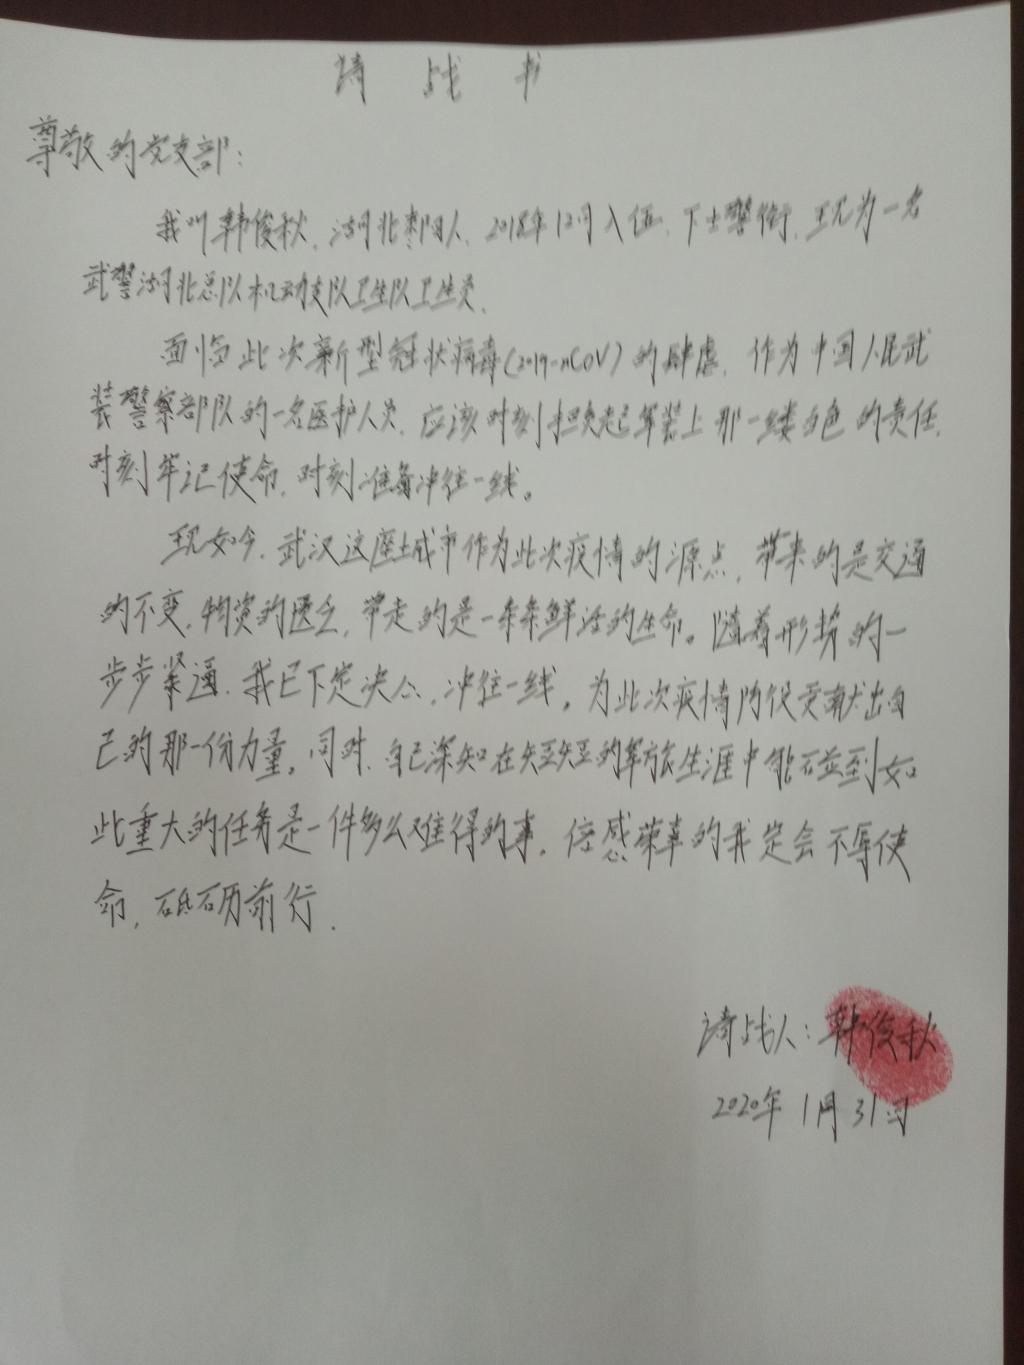 请战书
尊敬的党支部：
我叫韩俊秋，湖北枣阳人，2018年12月入伍，下士警衔，现为一名
武警湖北总队机动支队卫生队卫生员，
面临此次新型冠状病毒(2019-nCoV)的肆虐，作为中国人民武
装警察部队的一名医护人员，应该时刻担负起军装上那一缕白色的责任，
时刻牢记使命，时刻准备冲往一线。
现如今，武汉这座城市作为此次疫情的源点，带来的是交通
的不变，物资的匮乏，带走的是一条条鲜活的生命。随着形势的一
步步紧逼，我已下定决心，冲往一线，为此次疫情防役贡献出自
己的那一份力量。同时，自己深知在短短的军旅生涯中能碰到如
此重大的任务是一件多么难得的事，倍感荣幸的我定会不辱使
命，砥砺前行．
请战人：韩俊秋
2020年1月31日